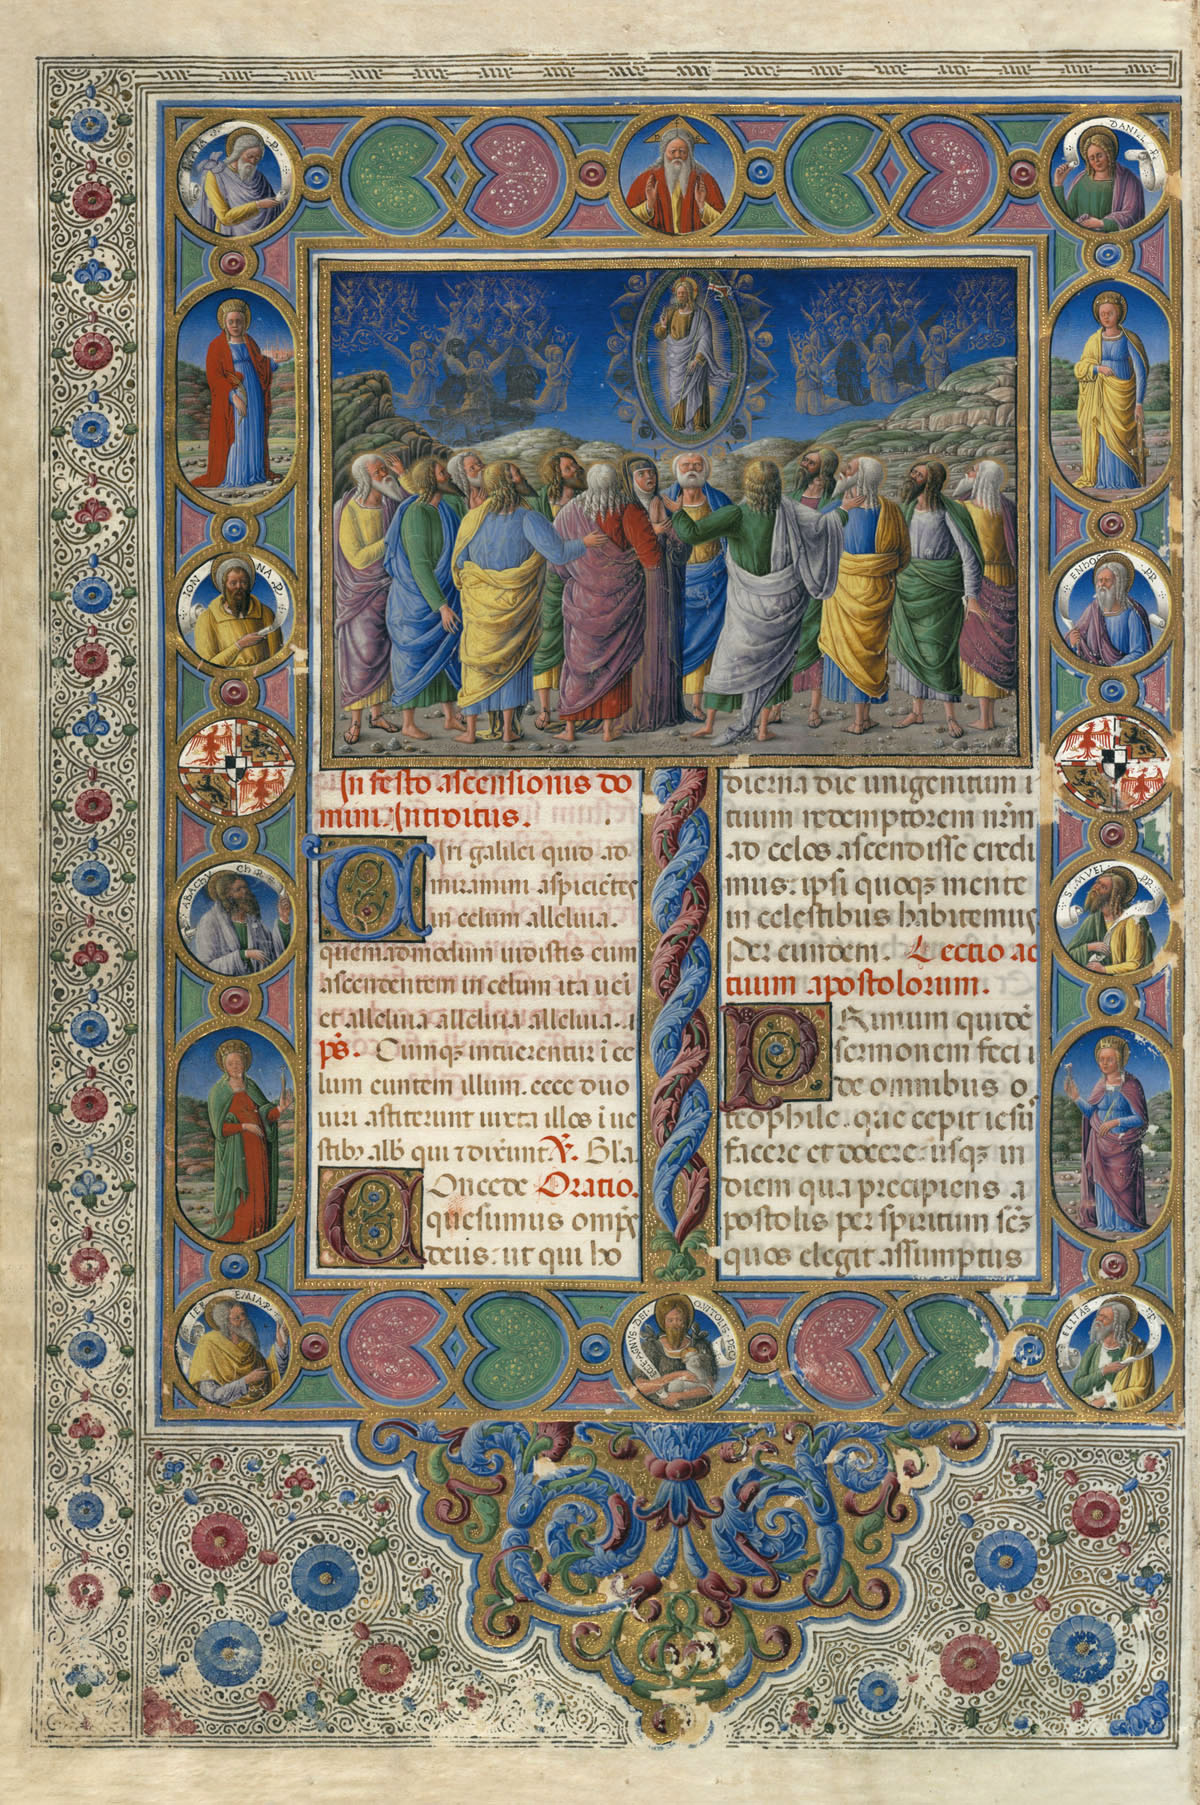 ISAIA · P ·
DANIEL · P
ION
NA · P ·
ENHOC · PR
In festo ascensionis do
mini. Introitus.
Viri galilei quid ad
miramini aspicietes
in celum alleluia.
quemadmodum uidistis eum
ascendentem in celum ita uei
et alleluia alleluia alleluia. i
ps. Cumq; intuerentur i ce
lum euntem illum. ecce duo
uiri astiterunt iuxta illos i ue
stib; alb qui 7 dixeunt. V. Gla.
Concede Oratio.
quesumus omps
deus. ut qui ho
dierna die unigenitum
tuum redemptorem nrm
ad celos ascendisse credi
mus. ipsi quoq; mente
in celestibus habitemus
Per eundem. Lectio ac
tuum apostolorum.
Primum quidē
sermonem feci i
de omnibus o
teophile. que cepit iesus
facere et docere. usq; in
diem qua precipiens a
postolis per spiritum scz
quos elegit assumptus
ABACHV CH · P
SAMVEL · PR ·
IER EMIA · P ·
ECCE · AGNVS · DEI · QVITOLIS · PECA
ELLIAS · P ·